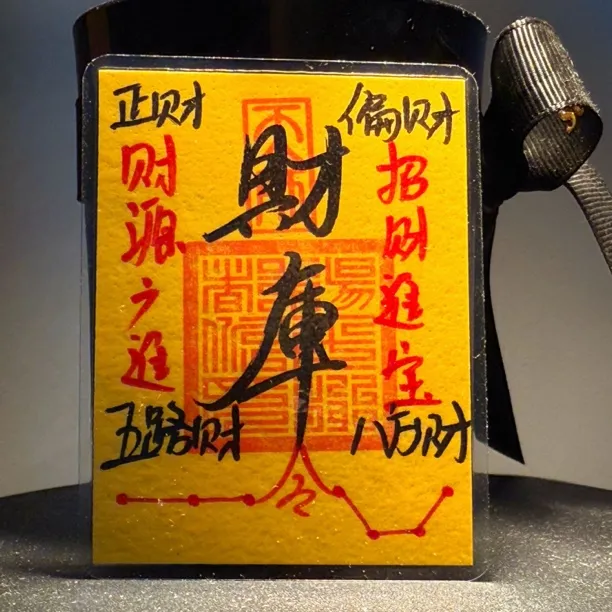 正财
偏财
财源广进
财库
招财进宝
五路财
八方财
令